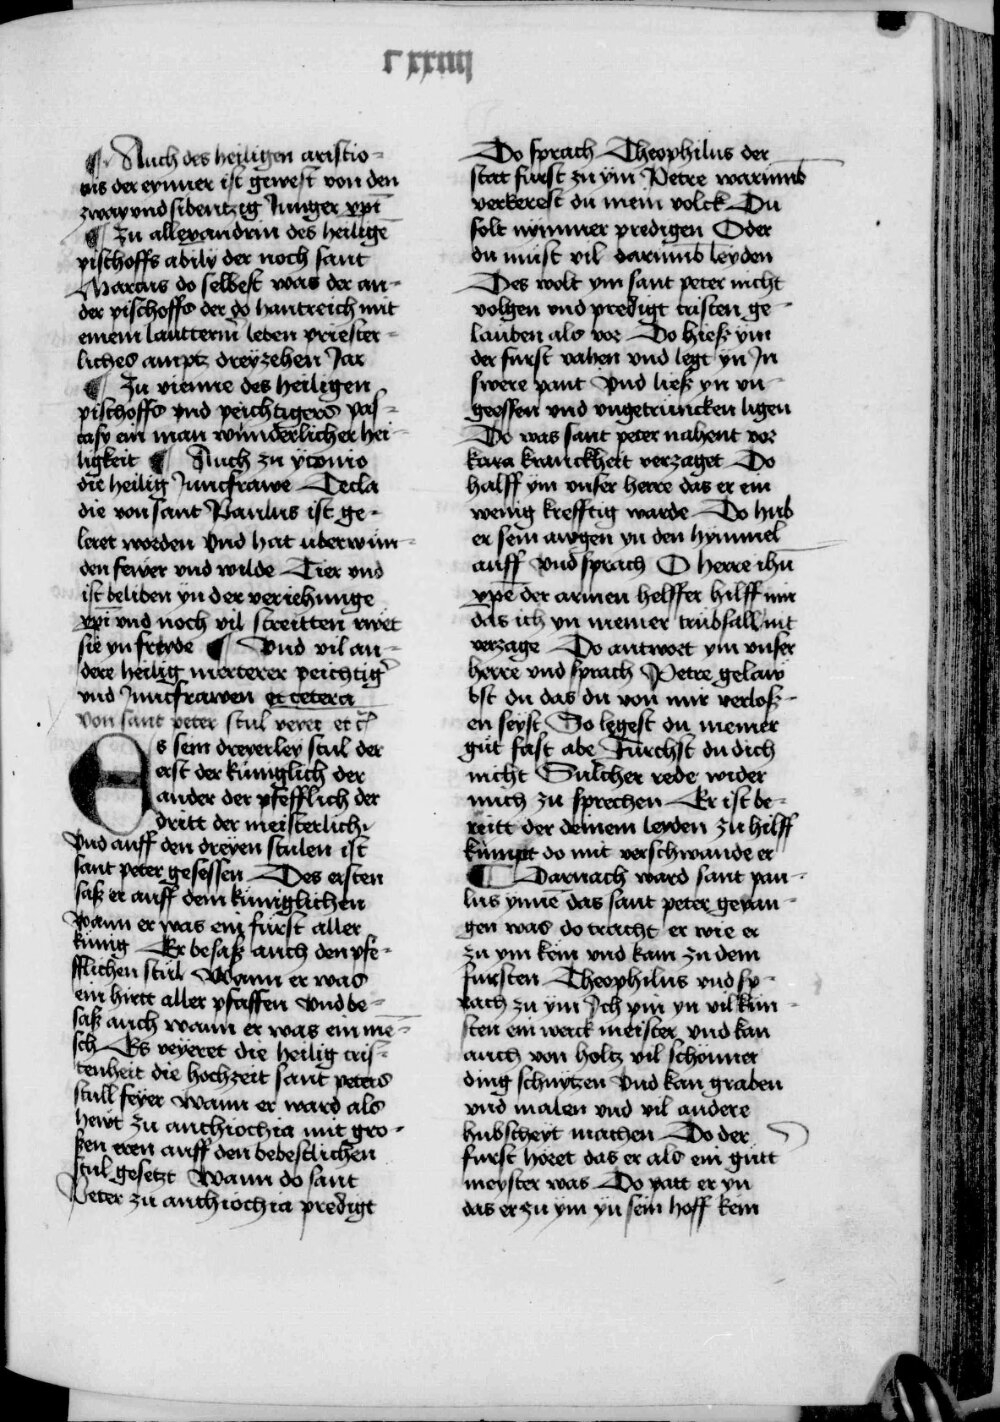 c xxiiij
¶ Auch des heiligen aristio-
nis der eynner ist gewest von den
zway vnd sibentzig Junger xpi
¶ Zu allexandrin des heilige
pischoffs abily der noch sant
Marcus do selbest was der an-
der pischoffs der do hantreich mit
einem lautterm leben priester-
liches amptz dreyzehen Jar
¶ Zu vienne des heiligen
pischoffs vnd peichtigers pas-
casy ein man wunderlicher hei-
ligkeit ¶ Auch zu yconio
die heilig Junckfrawe Tecla
die von sant Paulus ist ge-
leret worden vnd hat uberwun-
den fewer vnd wilde Tier vnd
ist beliben yn der veriehunge
xpi vnd noch vil streitten rwet
sie yn frewde ¶ Vnd vil an-
dere heilig merterer peichtig
vnd Junckfrawen et cetera
von sant peter stul veyer et c
Es sein dreyerley stul der
erst der kuniglich der
ander der pfefflich der
dritt der meisterlich
Vnd auff den dreyen stulen ist
sant peter gesessen Des ersten
saß er auff dem kuniglichen
wann er was ein furst aller
kunig Er besaß auch den pfe-
fflichen stul Wann er was
ein hirtt aller pfaffen Vnd be-
saß auch wann er was ein me-
sch Es veyeret die heilig cris-
tenheit die hochzeit sant peters
stull feyer Wann er ward als
hewt zu anthiochia mit gro-
ßen eren auff den bebestlichen
stul gesetzt Wann do sant
Peter zu anthiochia predigt
Do sprach Theophilus der
stat furst zu ym Petre warumb
verkerest du mein volck Du
solt nymmer predigen Oder
du must vil darumb leyden
Des wolt ym sant peter nicht
volgen vnd predigt cristen ge-
lauben als vor Do hieß ym
der furst vahen vnd legt yn Jn
swere pant Vnd ließ yn vn-
geessen vnd vngetruncken ligen
Do was sant peter nahent vor
kara kranckheit verzaget Do
halff ym vnser herre das er ein
wenig krefftig warde Do hub
er sein awgen yn den hymmel
auff Vnd sprach O herre ihu
xpe der armen helffer hilff mir
das ich yn meiner trubsall nit
verzage Do antwort ym vnser
herre vnd sprach Petre gelaw
bst du das du von mir verloß-
en seyst So legest du meiner
gut fast abe Furchst du dich
nicht Sulcher rede wider
mich zu sprechen Er ist be-
reitt der deinem leyden zu hilff
kumpt do mit verschwande er
¶ Darnach ward sant pau-
lus ynne das sant peter gevan-
gen was do tracht er wie er
zu ym kem vnd kam zu dem
fursten Theophilus vnd sp-
rach zu ym Jch pin yn vil kun-
sten ein werck meister vnd kan
auch von holtz vil schonner
ding schnytzen Vnd kan graben
vnd malen vnd vil andere
hubscheyt machen Do der
furst horet das er als ein gutt
meyster was Do patt er yn
das er zu ym yn sein hoff kem